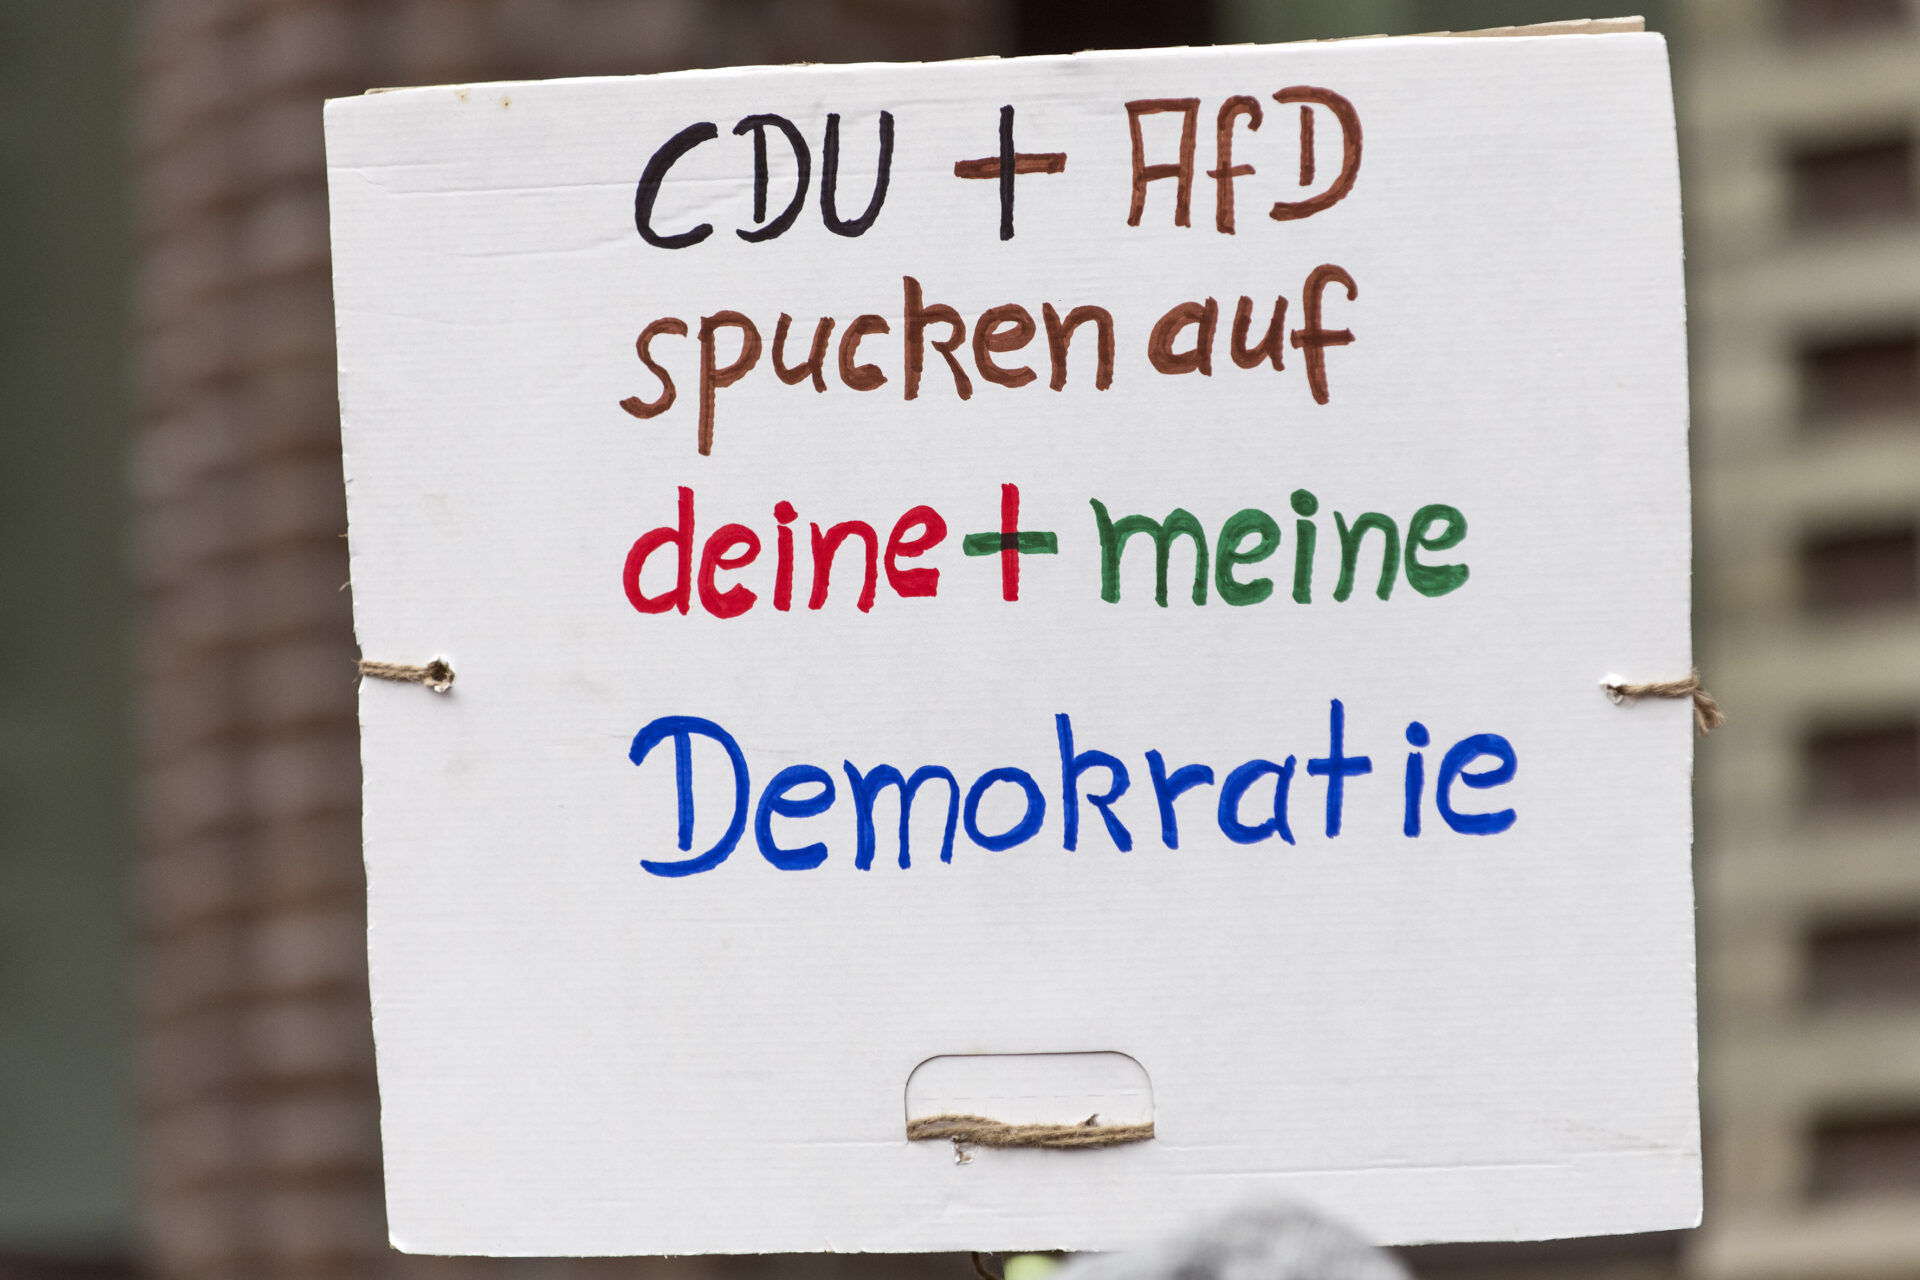 CDU + AfD
spucken auf
deine + meine
Demokratie